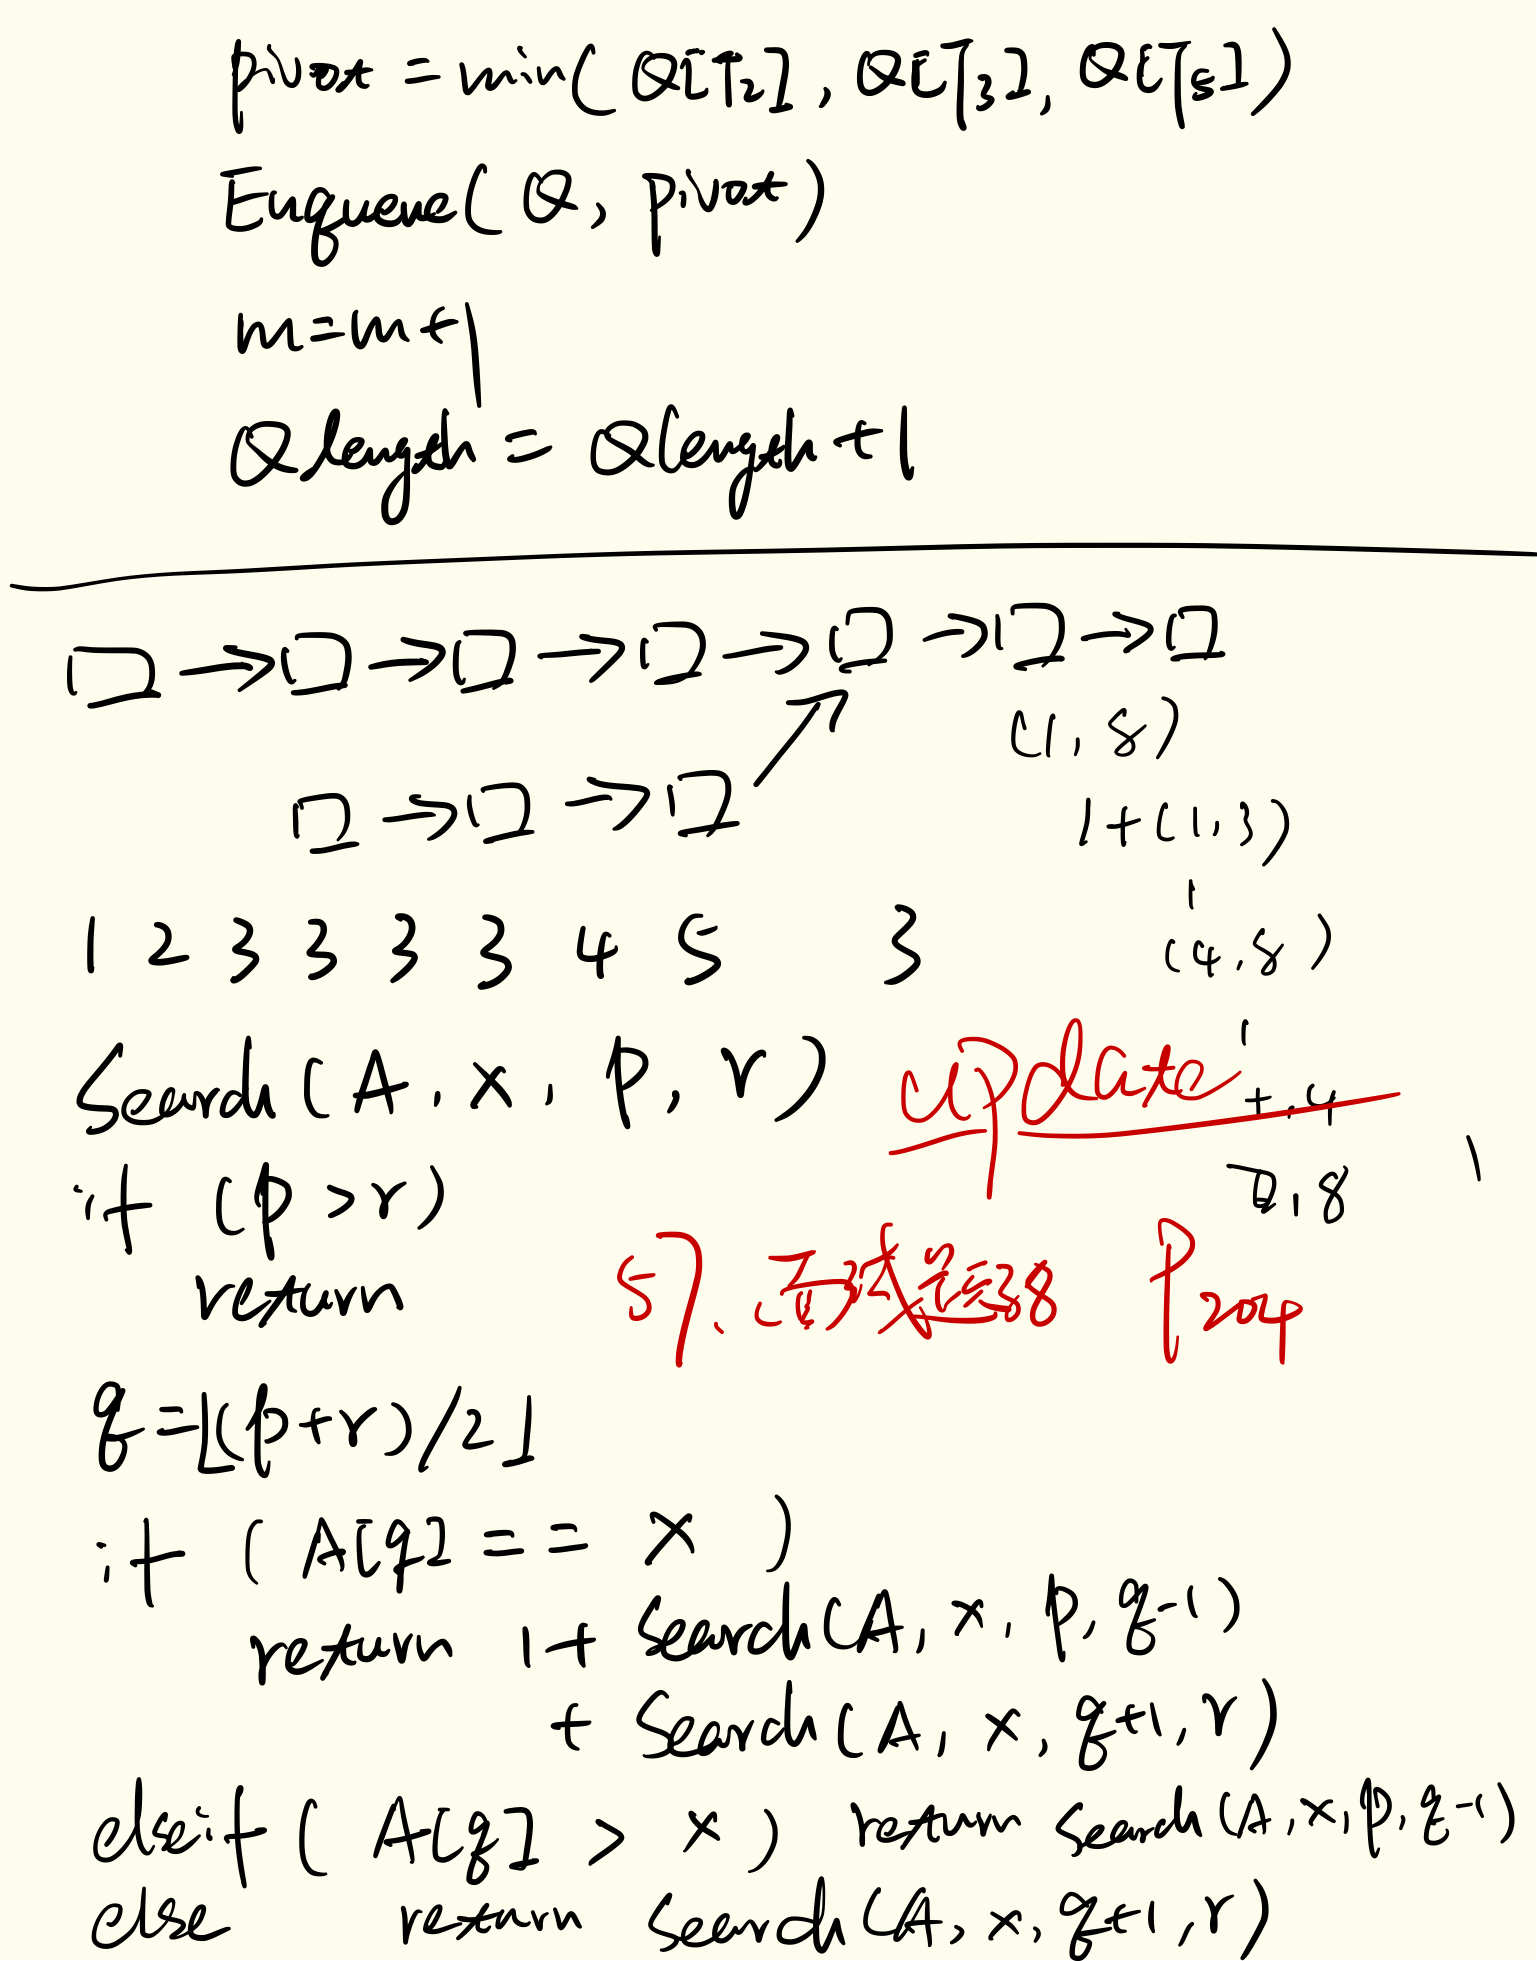 pivot = min( Q[T2], Q[T3], Q[T5] )
Enqueue( Q, pivot )
m = m + 1
Qlength = Qlength + 1
(1, 8)
1 + (1, 3)
1 2 3 3 3 3 4 5 3
(4, 8)
Search( A, x, p, r )
update
if (p > r)
, 8
return
57.
38 P204
q = ⌊(p+r)/2⌋
if ( A[q] == x )
return 1 + Search(A, x, p, q-1)
+ Search(A, x, q+1, r)
elseif ( A[q] > x ) return Search(A, x, p, q-1)
else return Search(A, x, q+1, r)